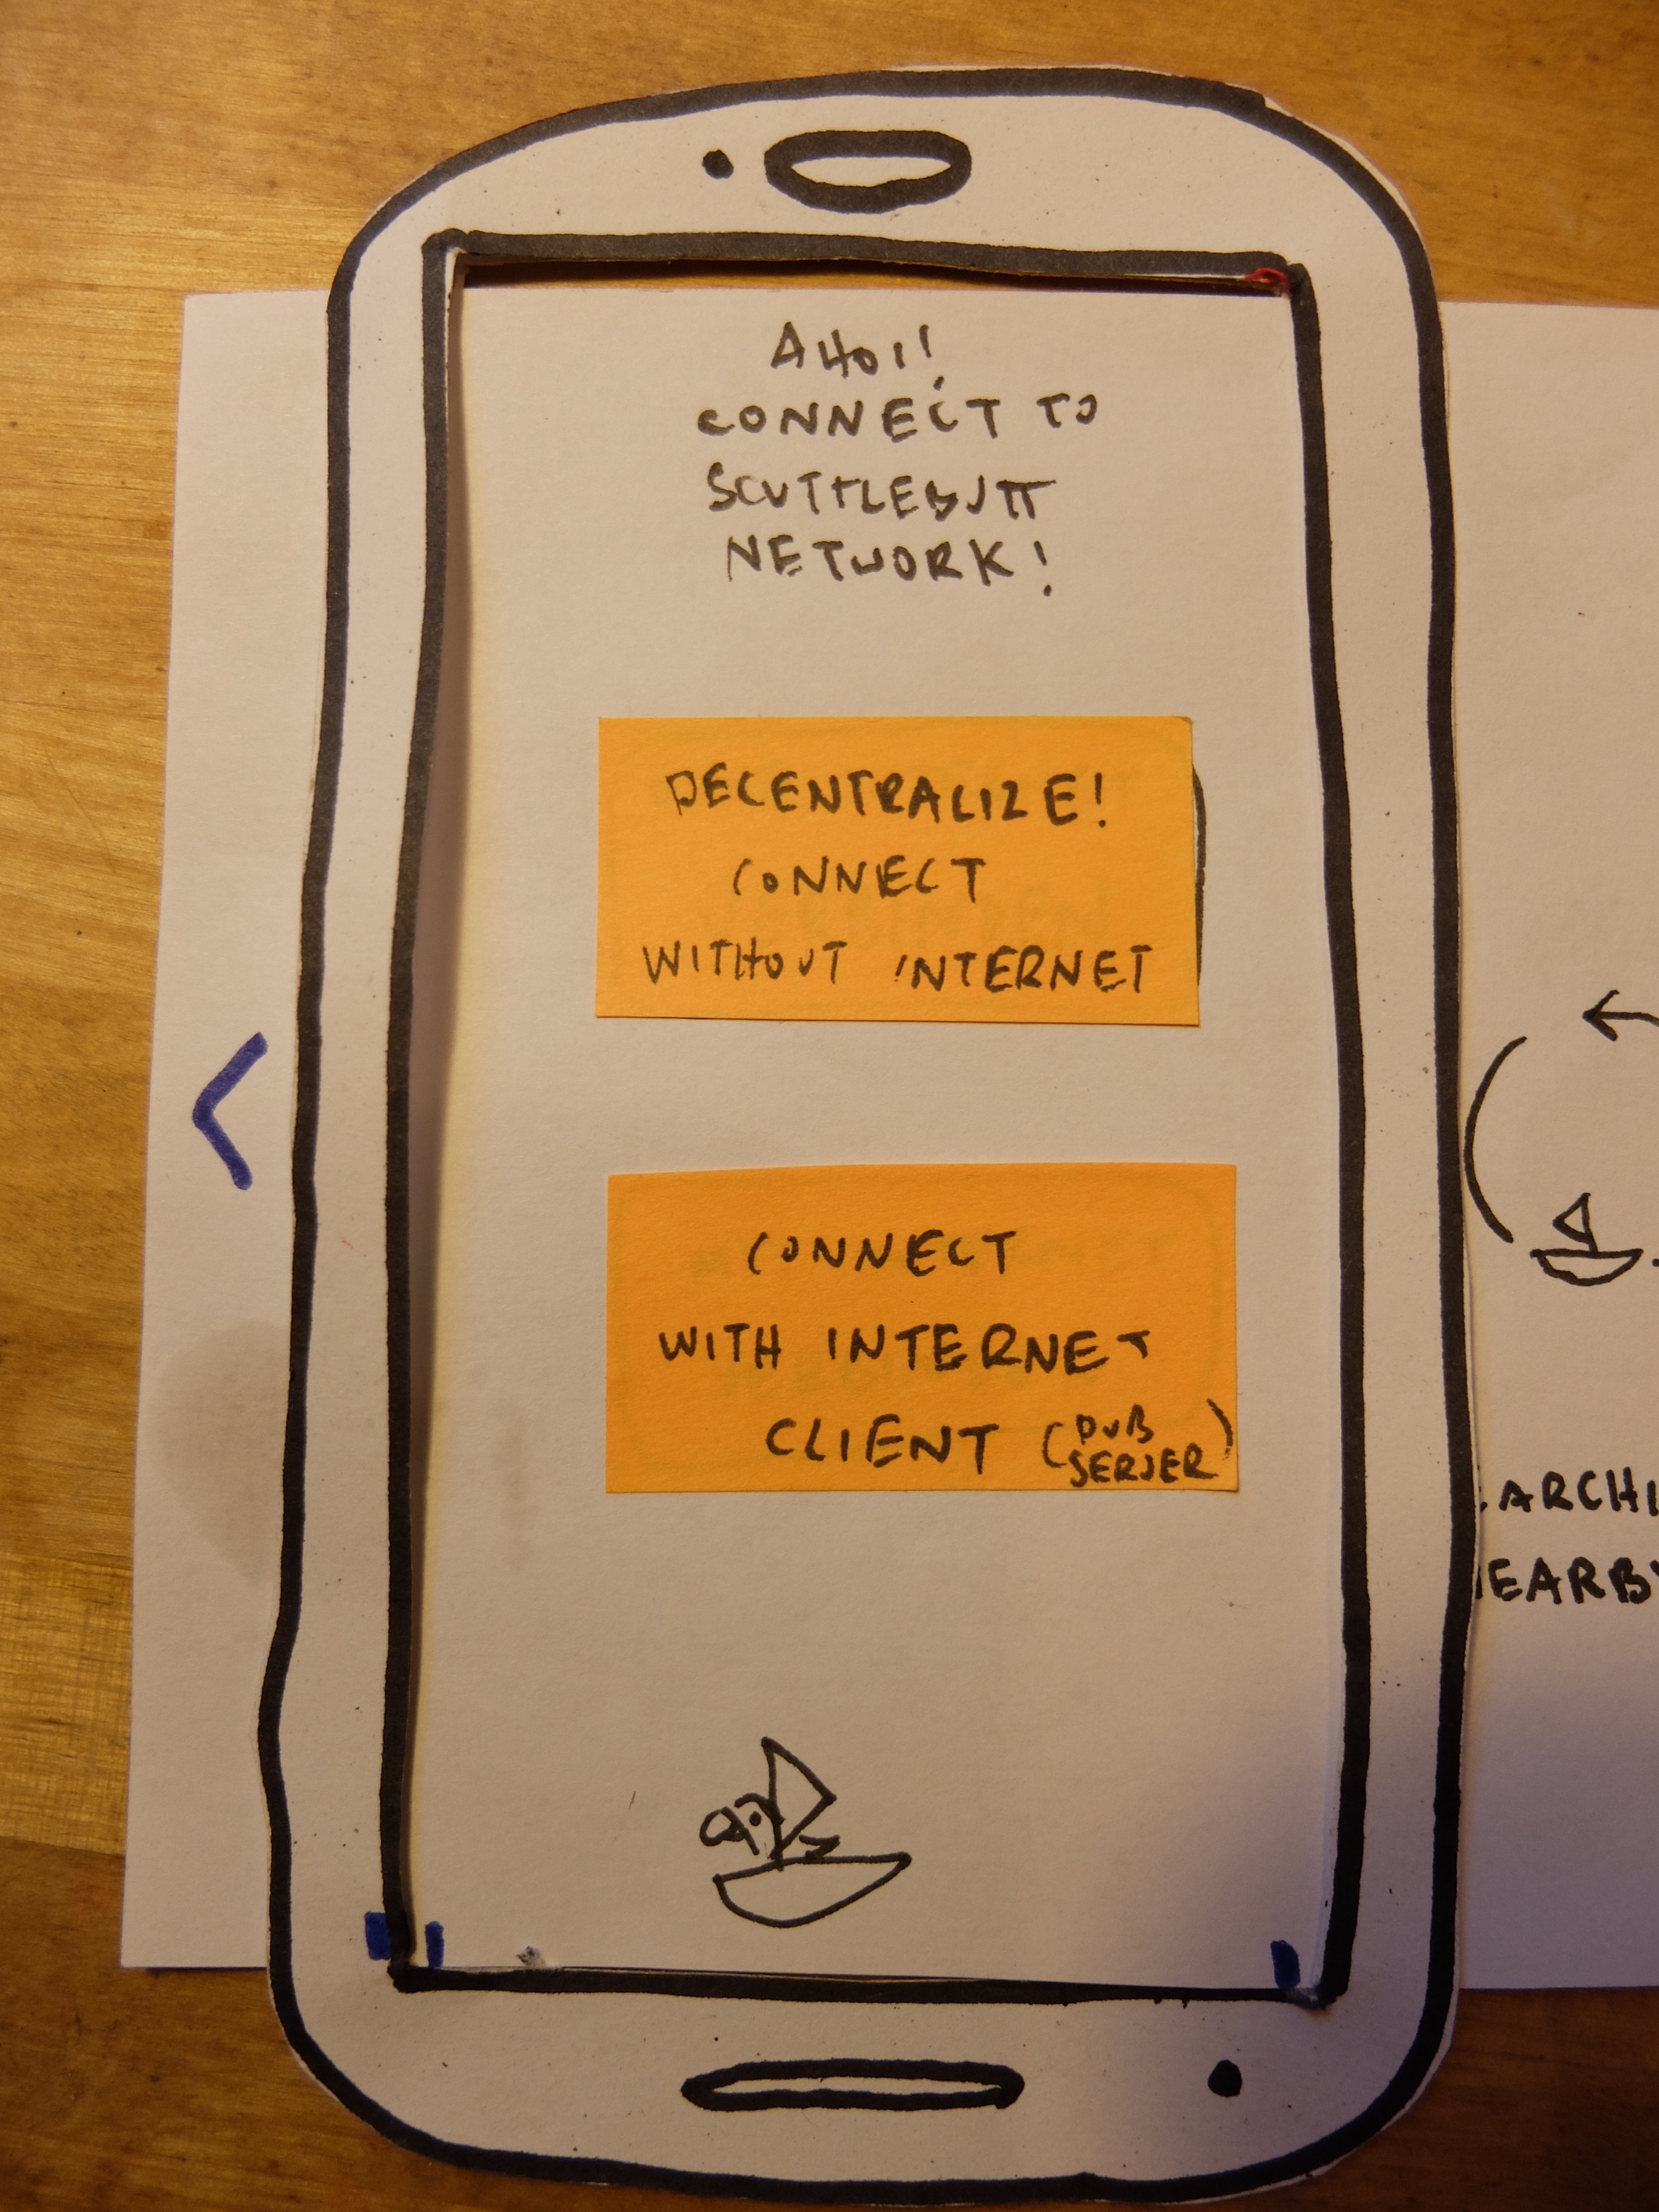 AHOI!
CONNECT TO
SCUTTLEBUTT
NETWORK!
DECENTRALIZE!
CONNECT
WITHOUT INTERNET
CONNECT
WITH INTERNET
CLIENT (PUB
SERVER)
ARCHI
EARBY